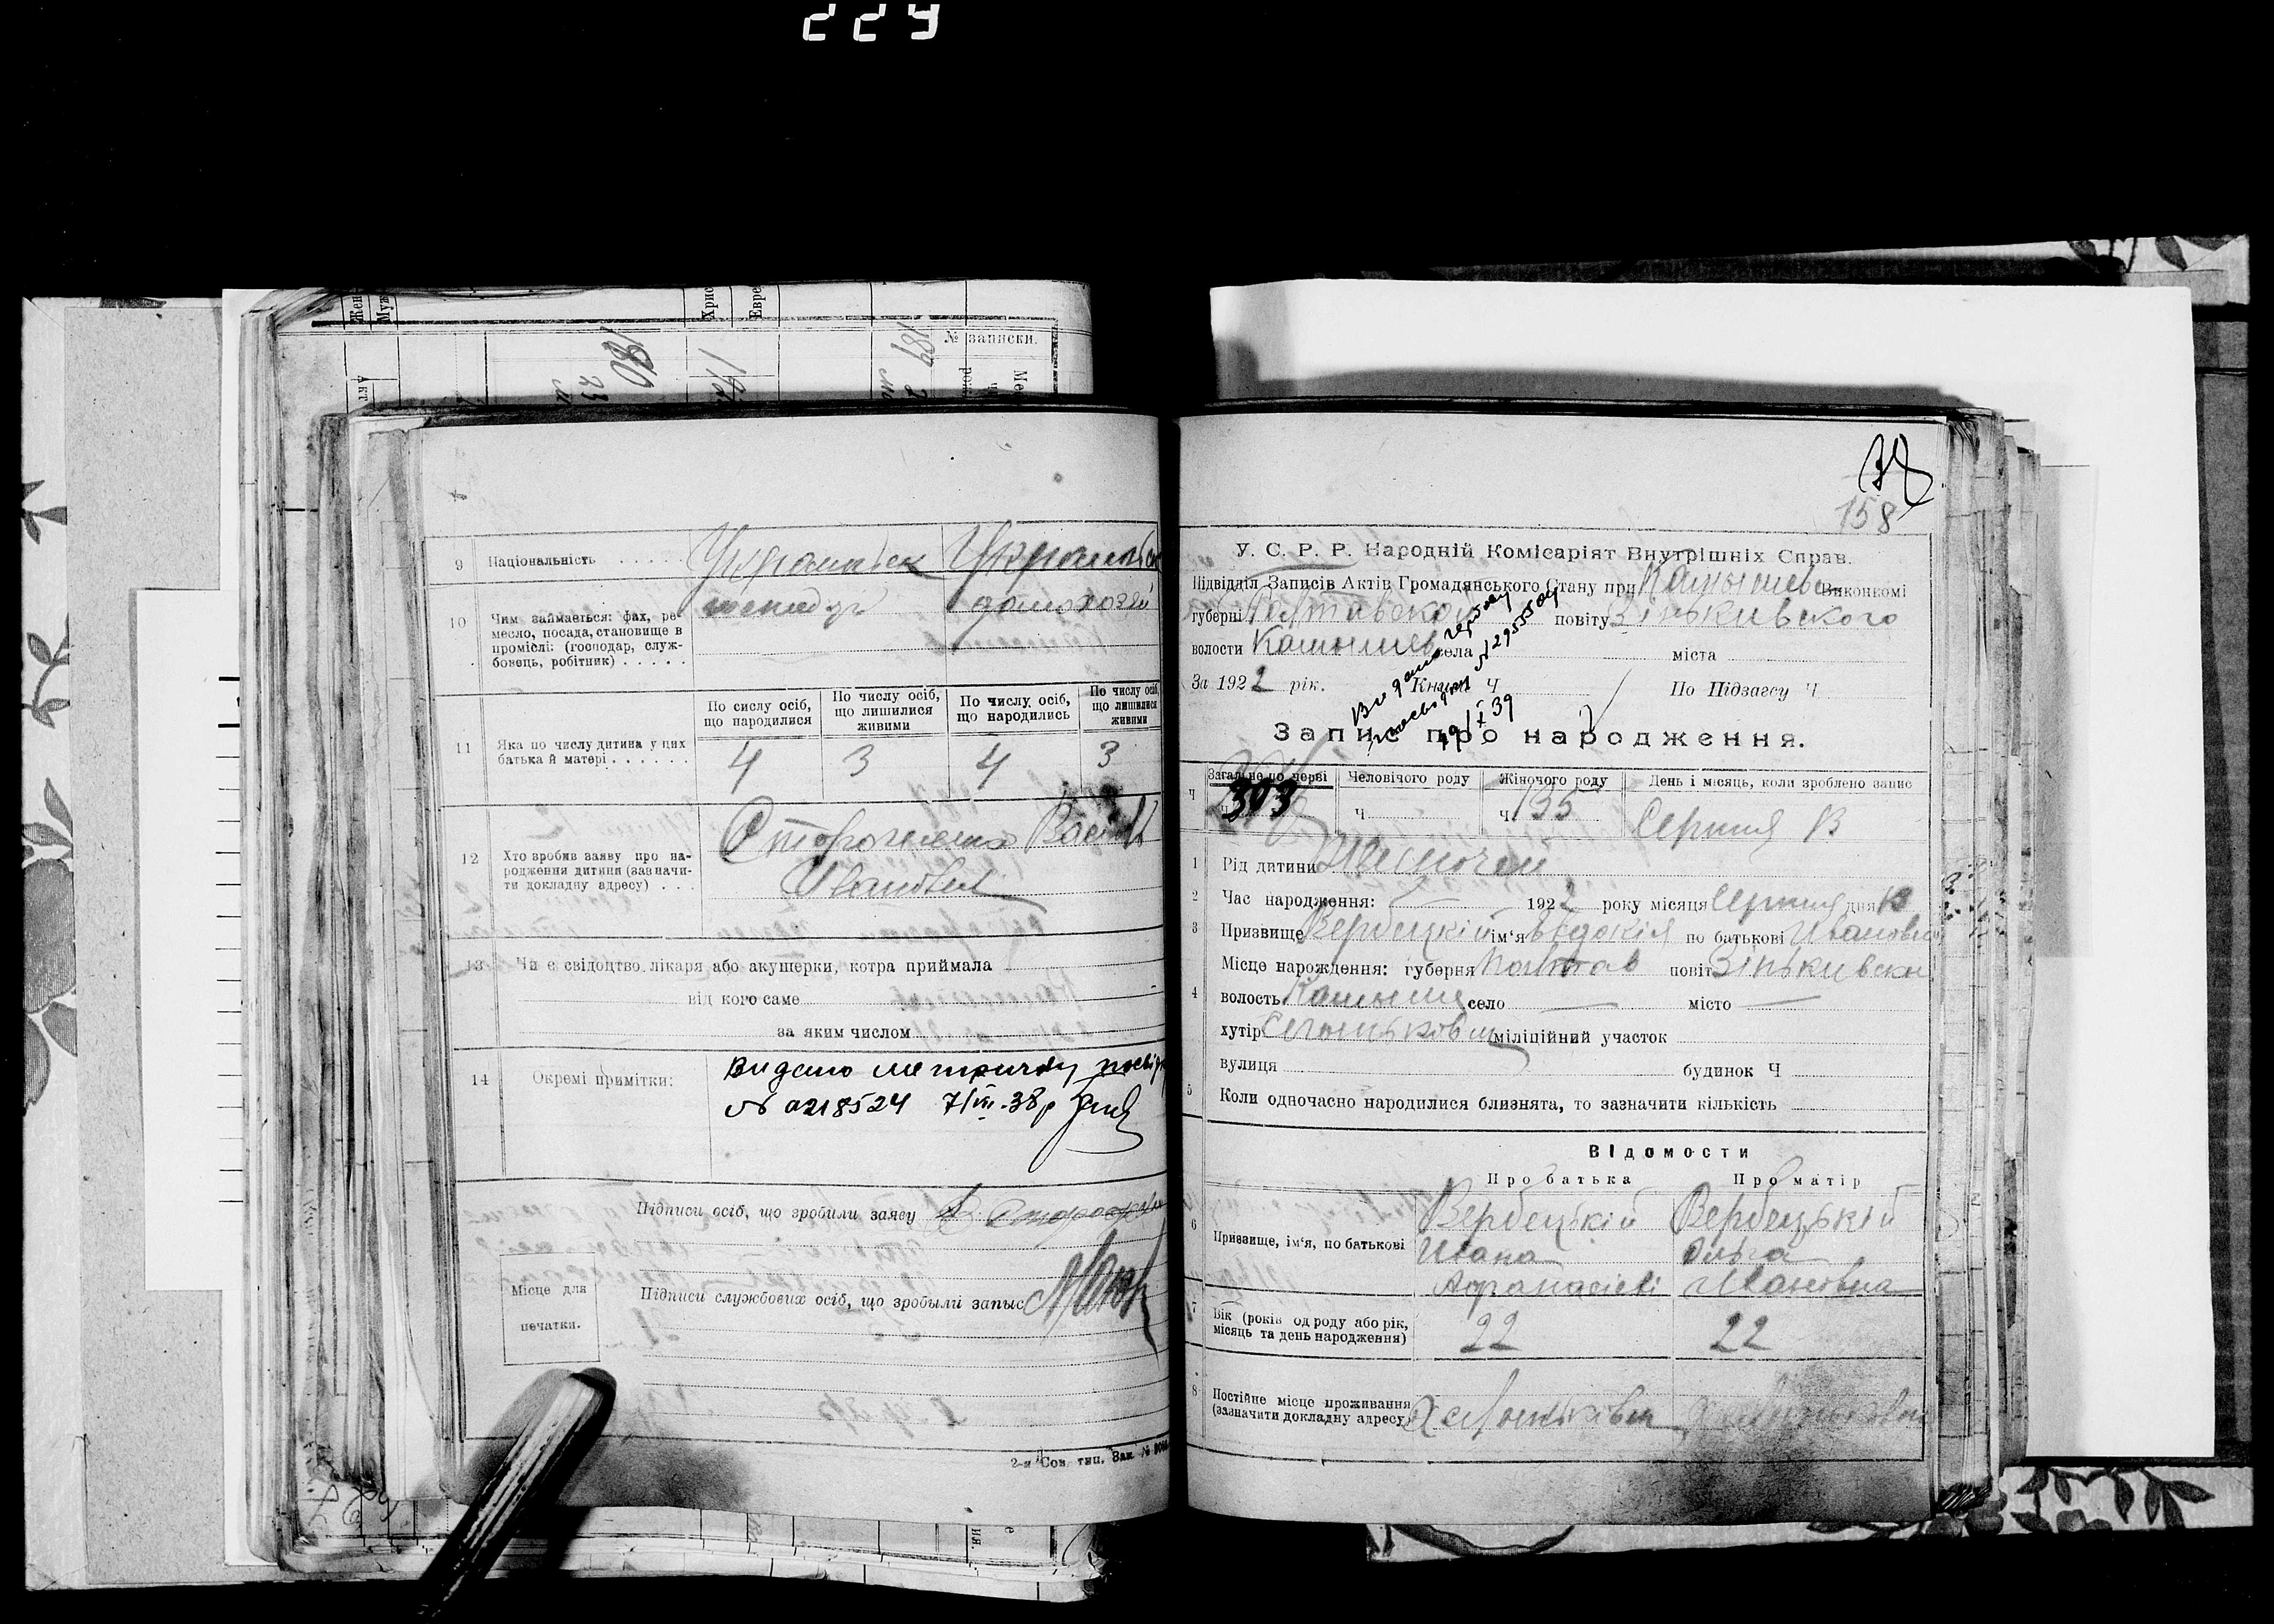 229
Жен
Муж
Хрис
Евре
№ записки.
189
180
23
9
Національність
Украинськ
Украинськ
10
Чим займається: фах, ре-
месло, посада, становище в
проміслі: (господар, служ-
бовець, робітник)
домохозяй
11
Яка по числу дитина у цих
батька й матері
По сислу осіб,
що народилися
По числу осіб,
що лишилося
живими
По числу осіб,
що народились
По числу осіб,
що лишилися
живими
4
3
4
3
12
Хто зробив заяву про на-
родження дитини (зазначи-
ти докладну адресу)
Стороженко
Ивановил
13
Чи є свідоцтво лікаря або акушерки, котра приймала
від кого саме
за яким числом
14
Окремі примітки:
Видано метричну посвід
№ 0218524 7/VII-38р
Підписи осіб, що зробили заяву
Місце для
печатки.
Підписи службових осіб, що зробыли запыс
2-я Сов. тип. Зак. №
158
У. С. Р. Р. Народній Комісаріят Внутрішніх Справ.
Підвідділ Записів Актів Громадянського Стану при Камышев Виконкомі
губерні Полтавской повіту Зіньківського
волости Камышев села міста
За 1922 рік. Книга Ч По Підзагсу Ч
Видано
№ 295550
19/X 39
Запис про народження.
Ч
Загальне по черві
303
Человічого роду
Ч
Жіночого роду
Ч 135
День і місяць, коли зроблено запис
Серпня 13
1 Рід дитини Жиночей
2 Час народження: 1922 року місяця Серпня дня 13
3 Призвище Вербецкій ім'я Евдокія по батькові Ивановна
4 Місце нарождення: губерня Полтав повіт Зіньківськ
волость Камыше село місто
хутір міліційний участок
вулиця будинок Ч
5 Коли одночасно народилися близнята, то зазначити кількість
Відомости
Про батька
Про матір
6
Призвище, ім'я, по батькові
Вербецькій
Ивана
Афанасіеві
Вербецькій
Ольга
Ивановна
7
Вік (років од роду або рік,
місяць та день народження)
22
22
8
Постійне місце проживання
(зазначити докладну адресу)